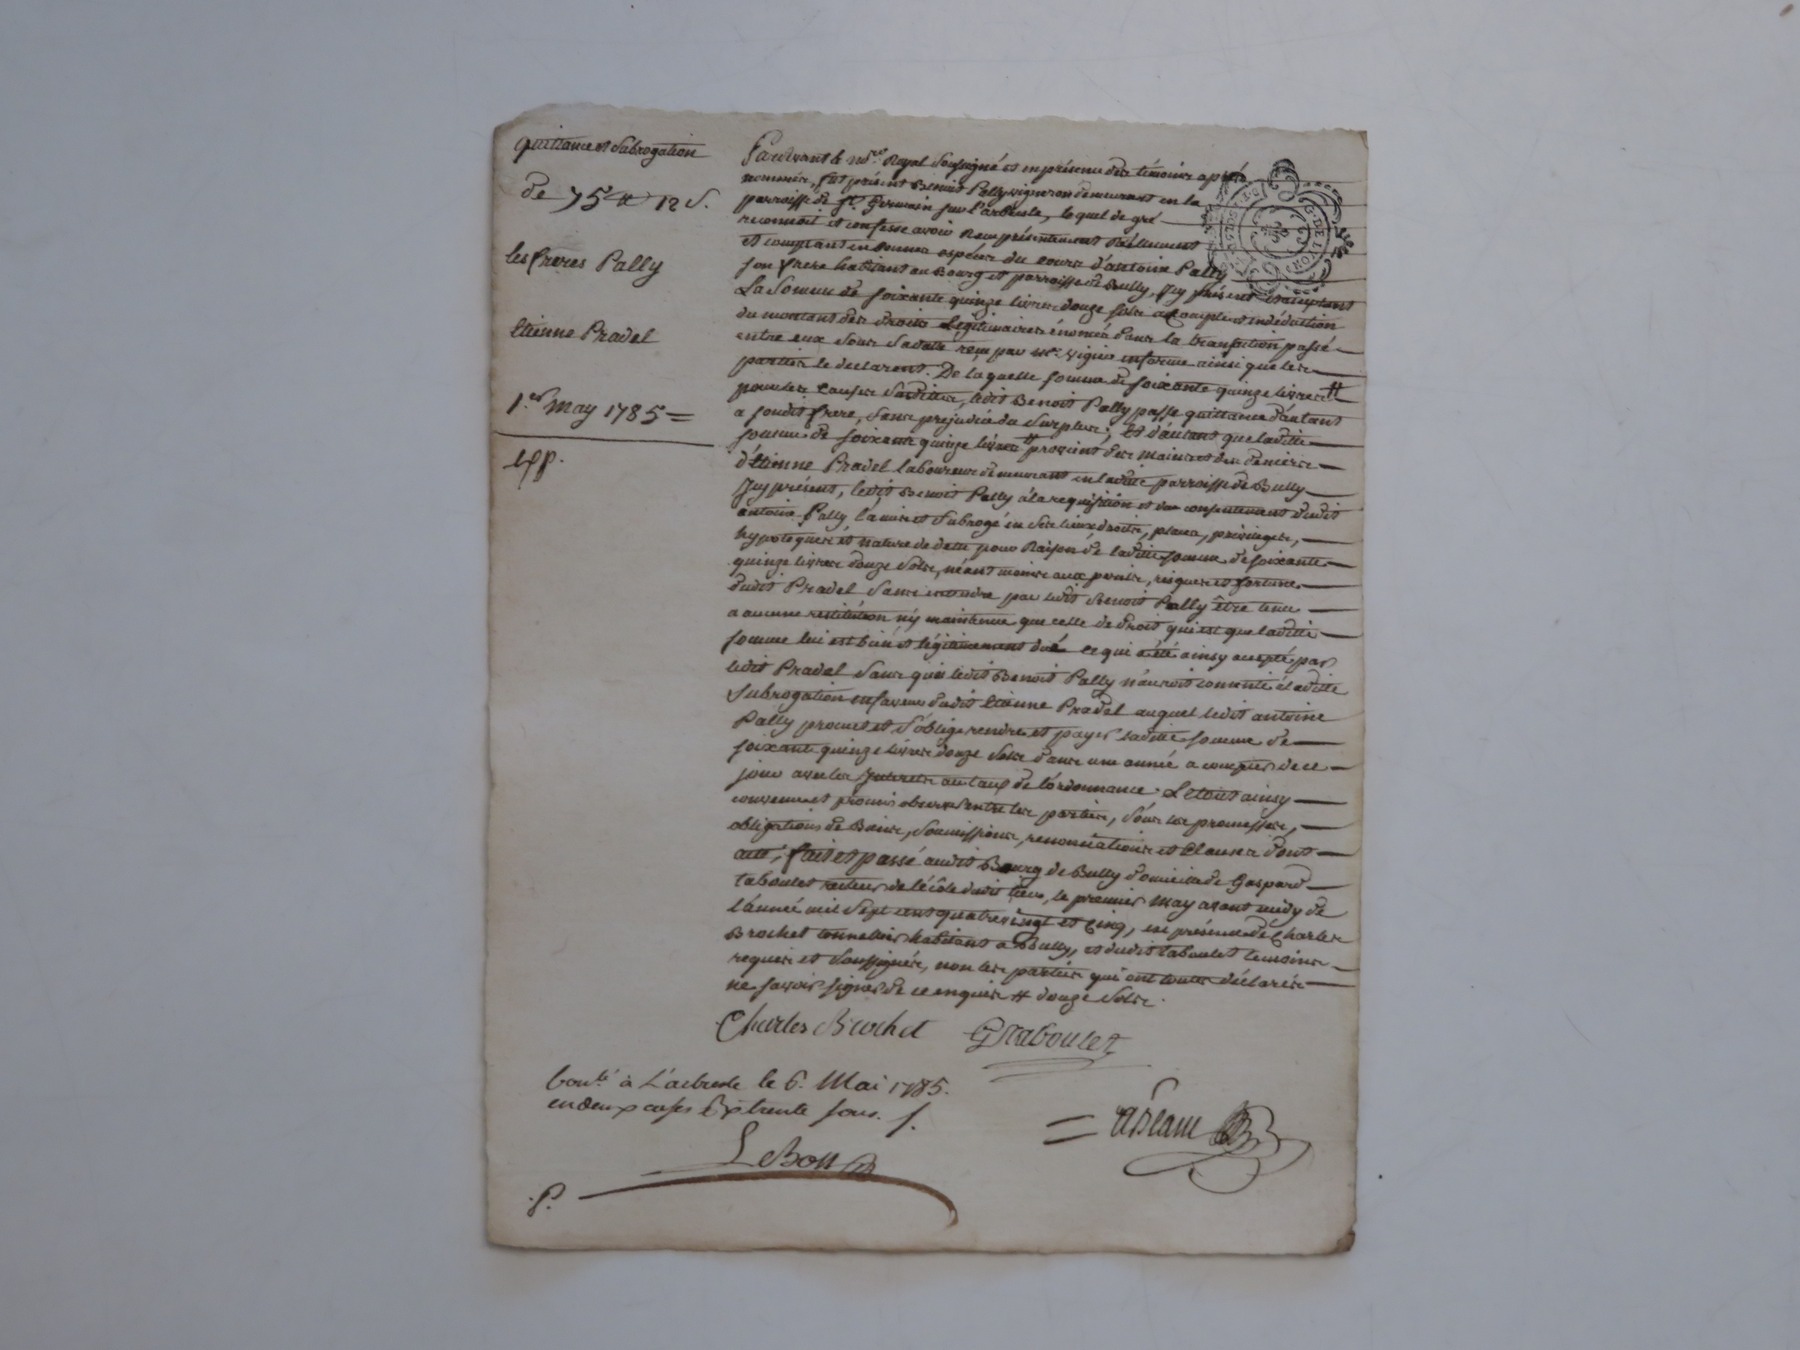 quittance et Subrogation
de 75 ₶ 12 s.
les freres Pally
Etienne Pradel
1.er May 1785 =
Exp.
Pardevant le no.re Royal Soussigné et en présence des témoins après
nommés, fut présent Benoit Pally vigneron demeurant en la
parroisse de S.t Germain sur l'arbresle, lequel de gré
reconnoit et confesse avoir Reçu présentement Réellement
et comptant en bonnes espéces du cours d'antoine Pally
son frere habitant au Bourg et parroisse de Bully, Icy présent et acceptant
La Somme de soixante quinze livres douze sols acompte et en déduction
du montant des droits Légitimaires énoncés dans la transaction passée
entre eux sous Sa datte reçue par M.e vigier en forme ainsi que les
parties le déclarent. De laquelle somme de soixante quinze livres ₶
pour les causes Susdittes, ledit Benoit Pally passe quittance d'autant
a sondit frere, Sans prejudice du Surplus; Et d'autant que laditte
somme de soixante quinze livres ₶ provient des mains et des deniers
d'Etienne Pradel laboureur demeurant en laditte parroisse de Bully
Icy présent, ledit Benoit Pally à la requisition et du consentement dudit
antoine Pally l'a mis et Subrogé en Ses lieux droits, place, privileges,
hypoteques et nature de dette pour Raison de laditte somme de soixante
quinze livres douze Sols, néant moins aux perils, risques et fortune
dudit Pradel Sans entendre par ledit Benoit Pally être tenu
a aucune restitution ny maintenue que celle de droit qui est que laditte
somme lui est bien et légitimement dué ce qui a été ainsy accepté par
ledit Pradel Sans quoi ledit Benoit Pally n'auroit consenti à laditte
Subrogation en faveur dudit Etienne Pradel auquel ledit antoine
Pally promet et S'oblige rendre et payer laditte somme de
soixante quinze livres douze Sols dans une année a compter de ce
jour avec les Interets au taux de l'ordonnance. Le tout ainsy
convenu et promis observer entre les parties, sous les promesses,
obligations de Biens, Soumissions, renonciations et Clauses dont
acte; fait et passé audit Bourg de Bully domicile de Gaspard
taboulet recteur de l'école dudit lieu, le premier May avant midy de
l'année mil Sept cent quatre vingt et Cinq, en présence de Charles
Brochet tonnellier habitant a Bully, et dudit taboulet temoins
requis et Soussignés, non les parties qui ont toutes déclarés
ne savoir signer de ce enquis ₶ douze Sols.
Charles Brochet GTaboulet
Con.lé à L'arbresle le 6. Mai 1785.
en deux cases Rx trente sous. f.
LeBon